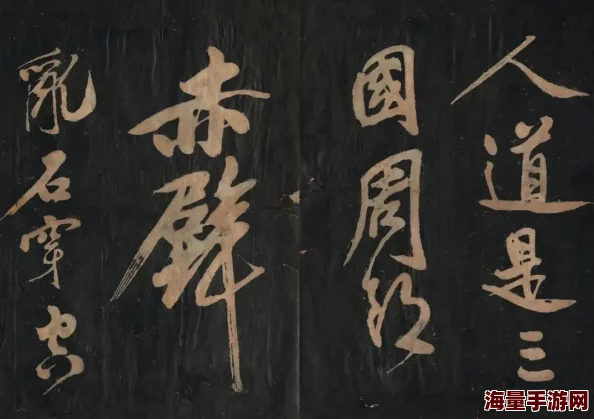 人道是三
國周郎
赤壁
亂石穿空
海量手游网